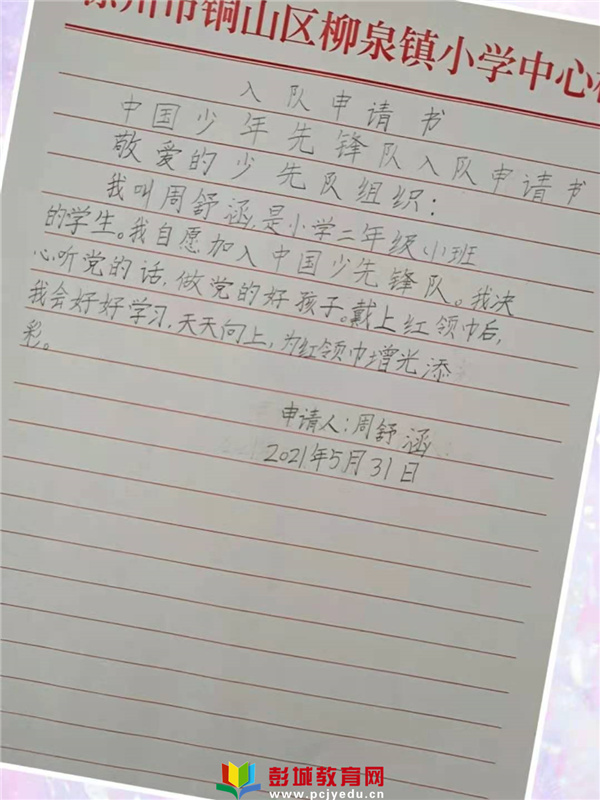 徐州市铜山区柳泉镇小学中心校
入队申请书
中国少年先锋队入队申请书
敬爱的少先队组织：
我叫周舒涵,是小学二年级小班
的学生。我自愿加入中国少先锋队。我决
心听党的话，做党的好孩子。戴上红领巾后，
我会好好学习，天天向上，为红领巾增光添
彩。
申请人：周舒涵
2021年5月31日
彭城教育网
www.pcjyedu.cn